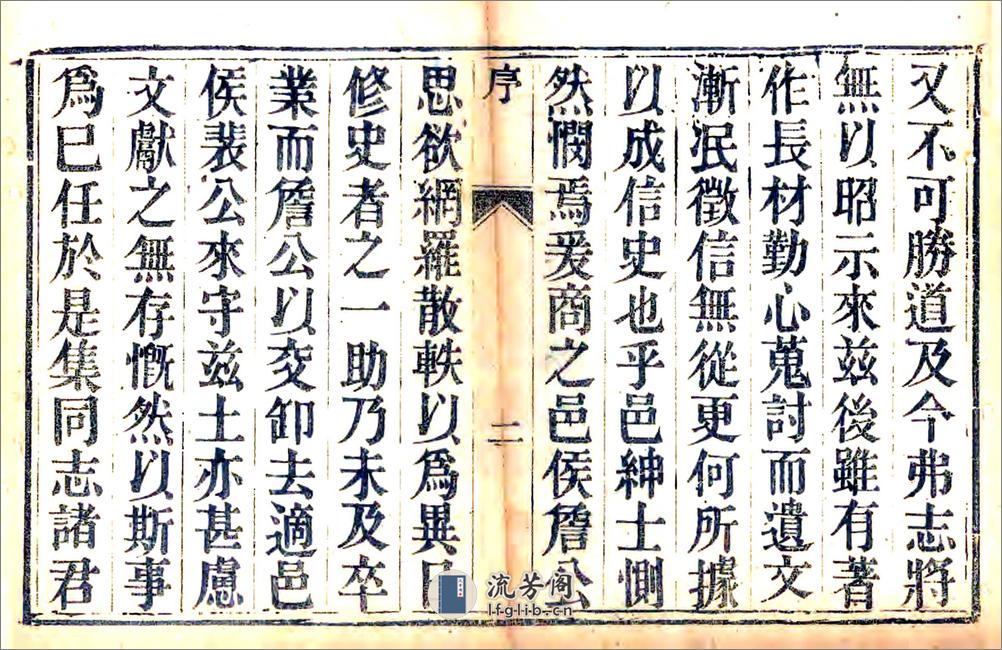 又不可勝道及今弗志將
無以昭示來兹後雖有著
作長材勤心蒐討而遺文
漸泯徵信無從更何所據
以成信史也乎邑紳士惻
然憫焉爰商之邑侯詹公
序
二
思欲網羅散軼以爲異日
修史者之一助乃未及卒
業而詹公以交卸去適邑
侯裴公來守兹土亦甚慮
文獻之無存慨然以斯事
爲已任於是集同志諸君
流芳阁
lfglib.cn